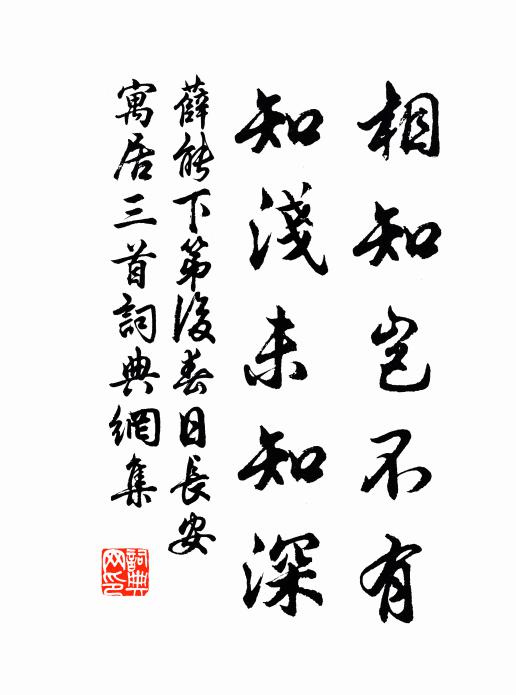 相知豈不有
知淺未知深
薛能下第後春日長安
寓居三首詞典網集
詞典网印